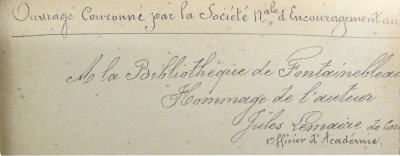 Ouvrage Couronné par la Société Nale d'Encouragement au
A la Bibliothèque de Fontainebleau
Hommage de l'auteur
Jules Lemaire de
Officier d'Académie.